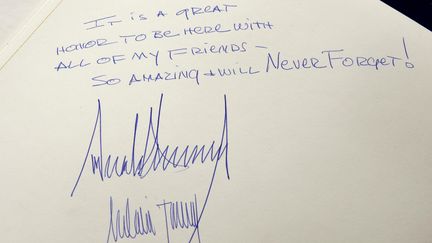 IT IS A GREAT
HONOR TO BE HERE WITH
ALL OF MY FRIENDS -
SO AMAZING + WILL NEVER FORGET!